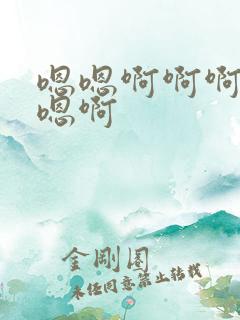 嗯嗯啊啊啊
嗯啊
金刚圈
未经同意禁止转载